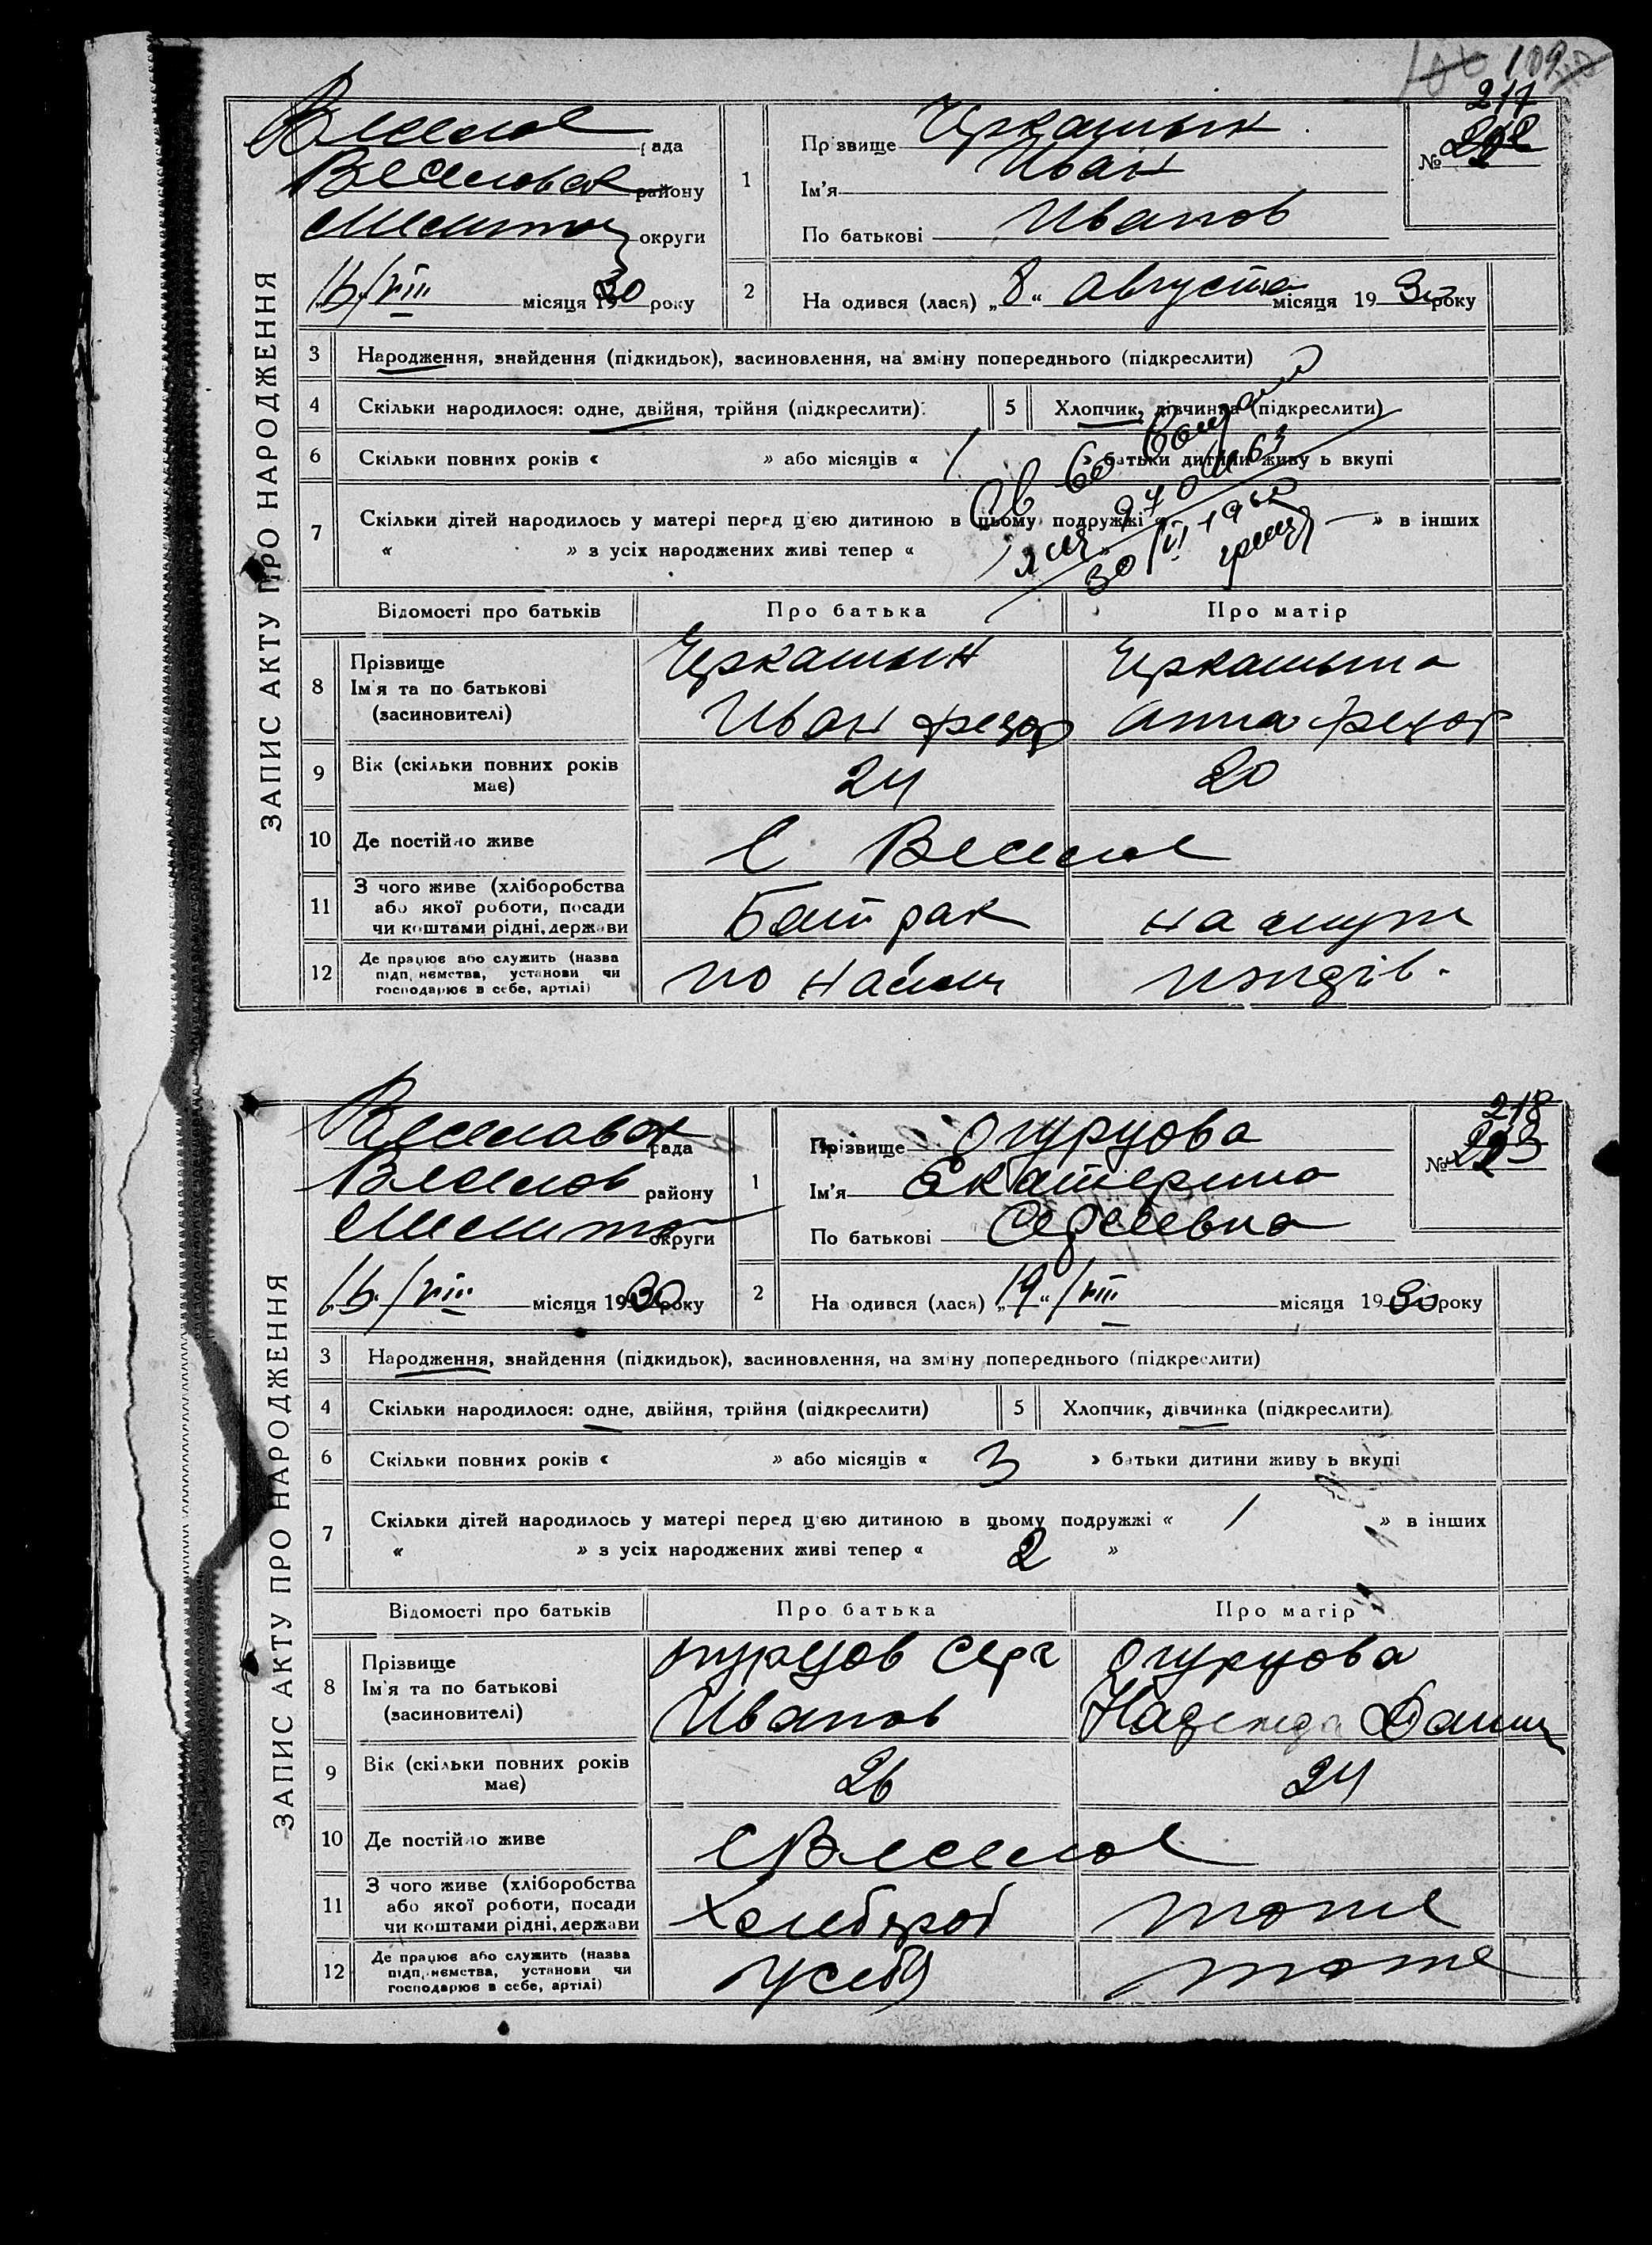 109
217
ЗАПИС АКТУ ПРО НАРОДЖЕННЯ
Веселое рада
Веселовск району
Мелитоп округи
16/VIII місяця 1930 року
1
Прізвище Черкашын
Ім'я Иван
По батькові Иванов
№
2
На одився (лася) „8“ Августа місяця 1930 року
3 Народження, знайдення (підкидьок), засиновлення, на зміну попереднього (підкреслити)
4 Скільки народилося: одне, двійня, трійня (підкреслити)
5 Хлопчик, дівчинка (підкреслити)
6 Скільки повних років « » або місяців « 1 » батьки дитини живу ь вкупі
7 Скільки дітей народилось у матері перед ц'єю дитиною в цьому подружжі « — » в інших
« » з усіх народжених живі тепер «
30/VI 1960
Відомості про батьків Про батька Про матір
8 Прізвище Ім'я та по батькові (засновителі)
Черкашын Черкашына
Иван Федор Анна Федор
9 Вік (скільки повних років має) 24 20
10 Де постійно живе С Веселое
11 З чого живе (хліборобства або якої роботи, посади чи коштами рідні, держави Батрак на
12 Де працює або служить (назва підп, иємства, установи чи господарює в себе, артілі) по найму
218
223
ЗАПИС АКТУ ПРО НАРОДЖЕННЯ
Веселовск рада
Веселов району
Мелитоп округи
16/VIII місяця 1930 року
1
Прізвище Огурцова
Ім'я Екатерина
По батькові Сергеевна
№
2
На одився (лася) „19“/VIII місяця 1930 року
3 Народження, знайдення (підкидьок), засиновлення, на зміну попереднього (підкреслити)
4 Скільки народилося: одне, двійня, трійня (підкреслити)
5 Хлопчик, дівчинка (підкреслити)
6 Скільки повних років « » або місяців « 3 » батьки дитини живу ь вкупі
7 Скільки дітей народилось у матері перед ц'єю дитиною в цьому подружжі « 1 » в інших
« » з усіх народжених живі тепер « 2 »
Відомості про батьків Про батька Про матір
8 Прізвище Ім'я та по батькові (засиновителі)
Огурцов Серг Огурцова
Иванов Надежда Данил
9 Вік (скільки повних років має) 26 24
10 Де постійно живе С Веселое
11 З чого живе (хліборобства або якої роботи, посади чи коштами рідні, держави Хлебороб тоже
12 Де працює або служить (назва підп, иємства, установи чи господарює в себе, артілі) У себя тоже